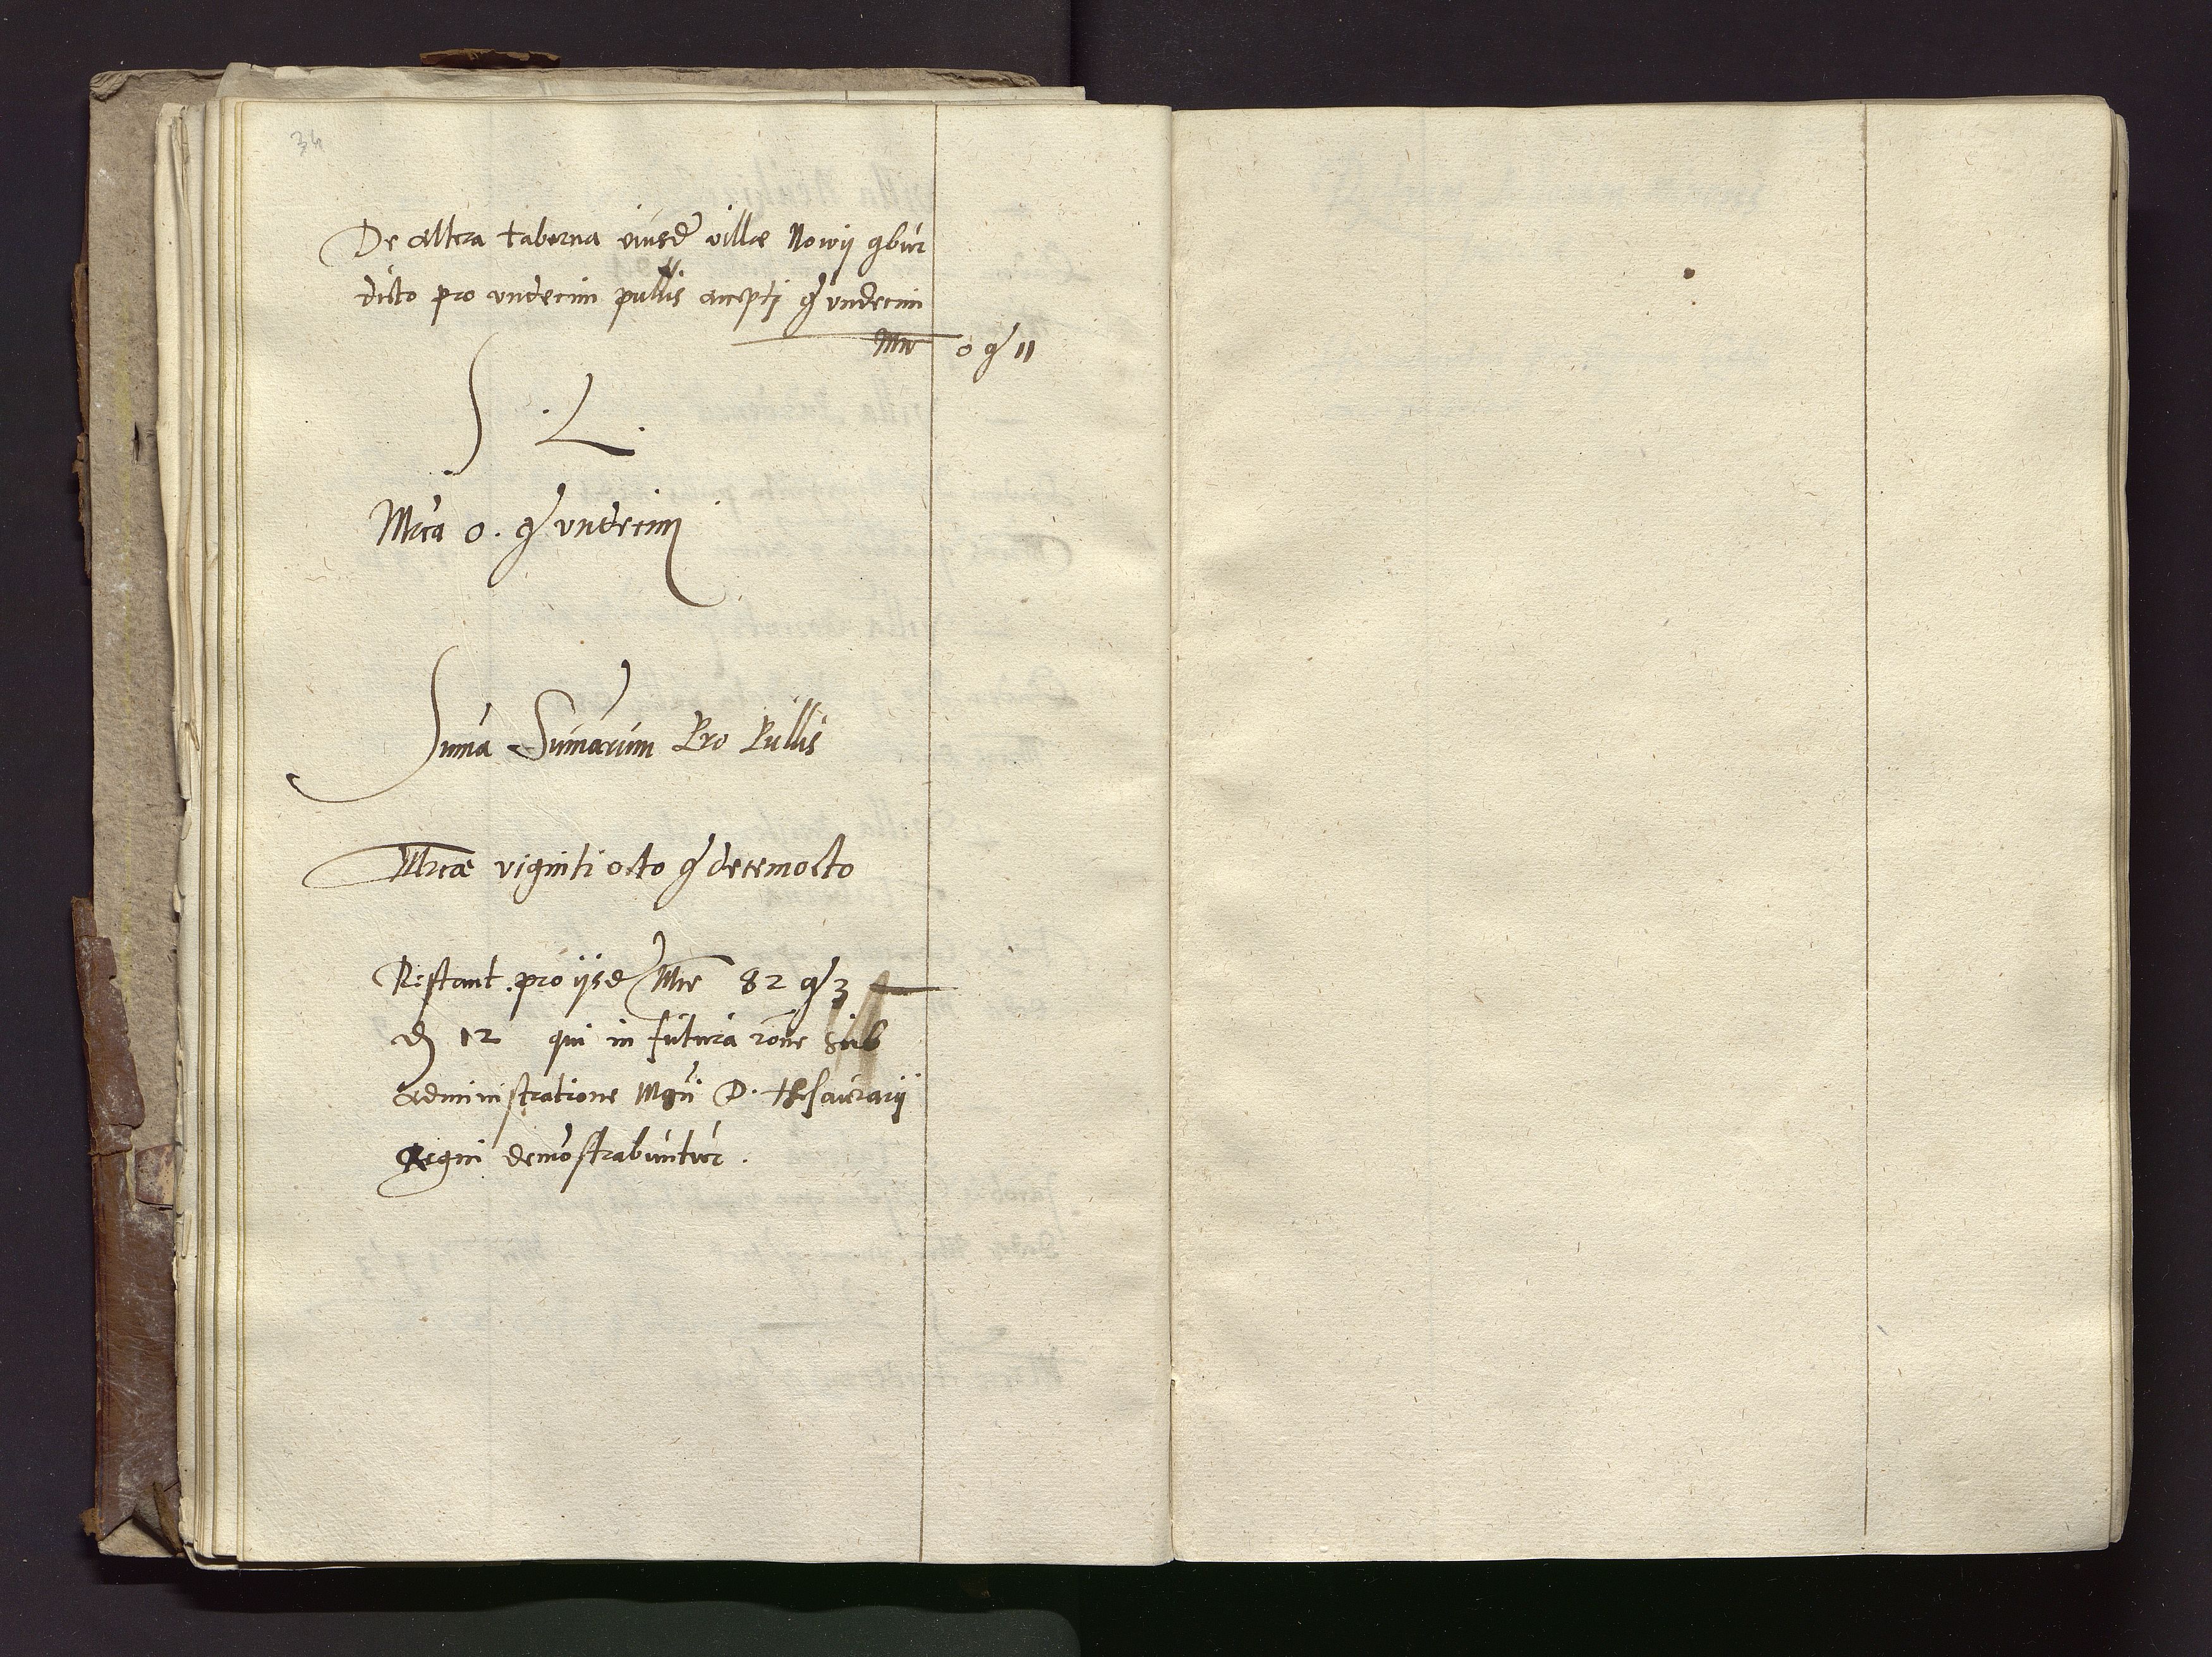 34
De altera taberna eiusd villæ Nowy gbur
dicto pro undecim pullis accepti g undecim
Mrc 0 g 11
S . L .
Mrca 0. g undecim
Suma Sumarum Pro Pullis
Mrcæ viginti octo g decemocto
Restant pro iisd Mrc 82 g 3
d 12 qui in futura rone sub
administratione Mgci D. thesaurarii
Regni demostrabuntur.